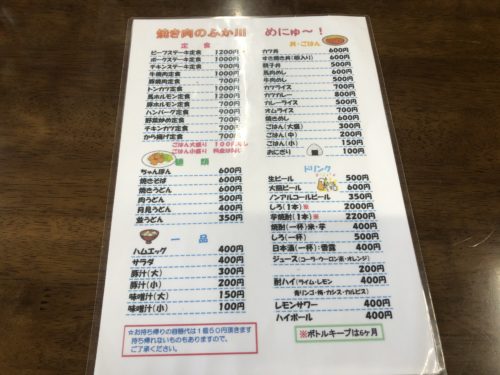 焼き肉のふか川 めにゅ〜！
定食
ビーフステーキ定食 1200円
ポークステーキ定食 1000円
チキンステーキ定食 900円
牛焼肉定食 900円
豚焼肉定食 700円
トンカツ定食 900円
馬ホルモン定食 900円
豚ホルモン定食 700円
ハンバーグ定食 900円
野菜炒め定食 700円
チキンカツ定食 700円
から揚げ定食 700円
ごはん大盛り 100円増し
ごはん小盛り
麺類
ちゃんぽん 600円
焼きそば 600円
焼きうどん 600円
肉うどん 500円
月見うどん 400円
並うどん 350円
一品
ハムエッグ 400円
サラダ 400円
豚汁（大） 300円
豚汁（小） 200円
味噌汁（大） 150円
味噌汁（小） 100円
☆お持ち帰りの容器代は1個50円頂きます
持ち帰れないものもありますので、
ご了承ください。
丼・ごはん
カツ丼 600円
すき焼き丼（卵入り） 600円
親子丼 500円
馬肉めし 600円
牛肉めし 500円
カツライス 700円
カツカレー 800円
カレーライス 500円
オムライス 700円
焼きめし 600円
ごはん（大盛） 300円
ごはん（中） 200円
ごはん（小） 150円
おにぎり 100円
ドリンク
生ビール 500円
大瓶ビール 600円
ノンアルコールビール 350円
しろ（1本）※ 2000円
芋焼酎（1本）※ 2200円
焼酎（一杯）米・芋 400円
しろ（一杯） 500円
日本酒（一杯） 400円
ジュース（コーラ・ウーロン茶・オレンジ）
200円
酎ハイ（ライム・レモン
青リンゴ・梅・カシス・カルピス）
400円
レモンサワー 400円
ハイボール 400円
※ボトルキープは6ヶ月